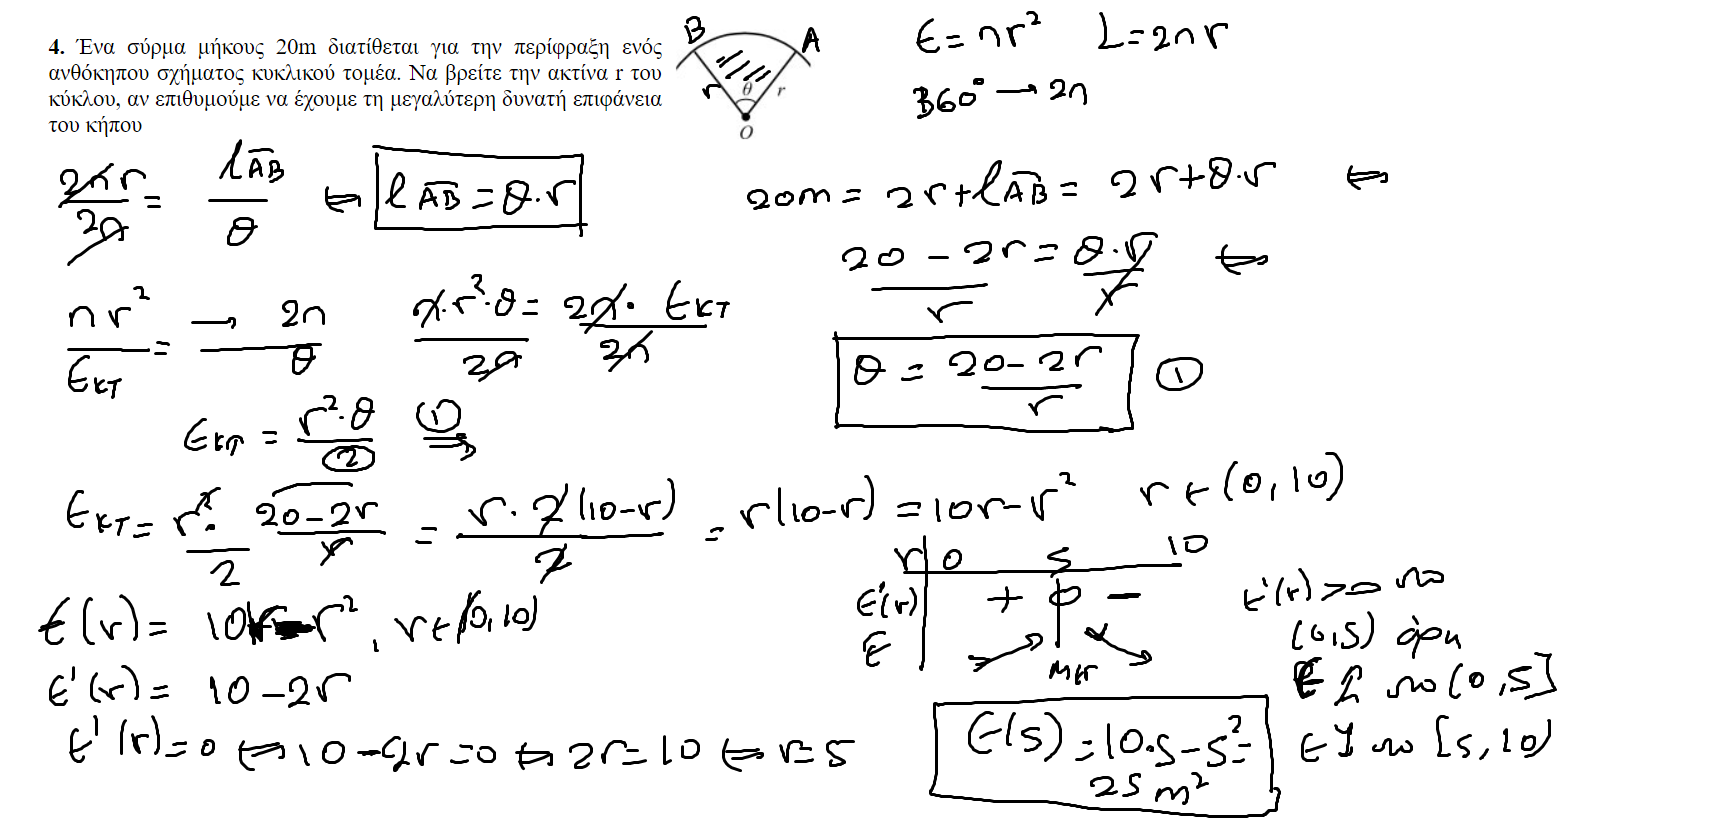 4. Ένα σύρμα μήκους 20m διατίθεται για την περίφραξη ενός
ανθόκηπου σχήματος κυκλικού τομέα. Να βρείτε την ακτίνα r του
κύκλου, αν επιθυμούμε να έχουμε τη μεγαλύτερη δυνατή επιφάνεια
του κήπου
B A
r θ r
O
E = πr² L = 2πr
360° → 2π
2πr/2π = l AB/θ ⇔ l AB = θ·r
20m = 2r + l AB = 2r + θ·r ⇔
20 - 2r/r = θ·r/r ⇔
θ = 20 - 2r/r ①
πr²/Eκτ = → 2π/θ
π·r²·θ/2π = 2π·Eκτ/2π
Eκτ = r²·θ/2 ①⇒
Eκτ = r²/2 · 20-2r/r = r·2(10-r)/2 = r(10-r) = 10r - r² r ∈ (0, 10)
E(r) = 10r - r², r ∈ (0, 10)
E'(r) = 10 - 2r
E'(r) = 0 ⇔ 10 - 2r = 0 ⇔ 2r = 10 ⇔ r = 5
r 0 5 10
E'(r) + 0 -
E ↗ ↘
μεγ
E'(r) > 0 στο
(0,5) άρα
E ↑ στο (0, 5]
E ↓ στο [5, 10)
E(5) = 10·5 - 5² =
25 m²